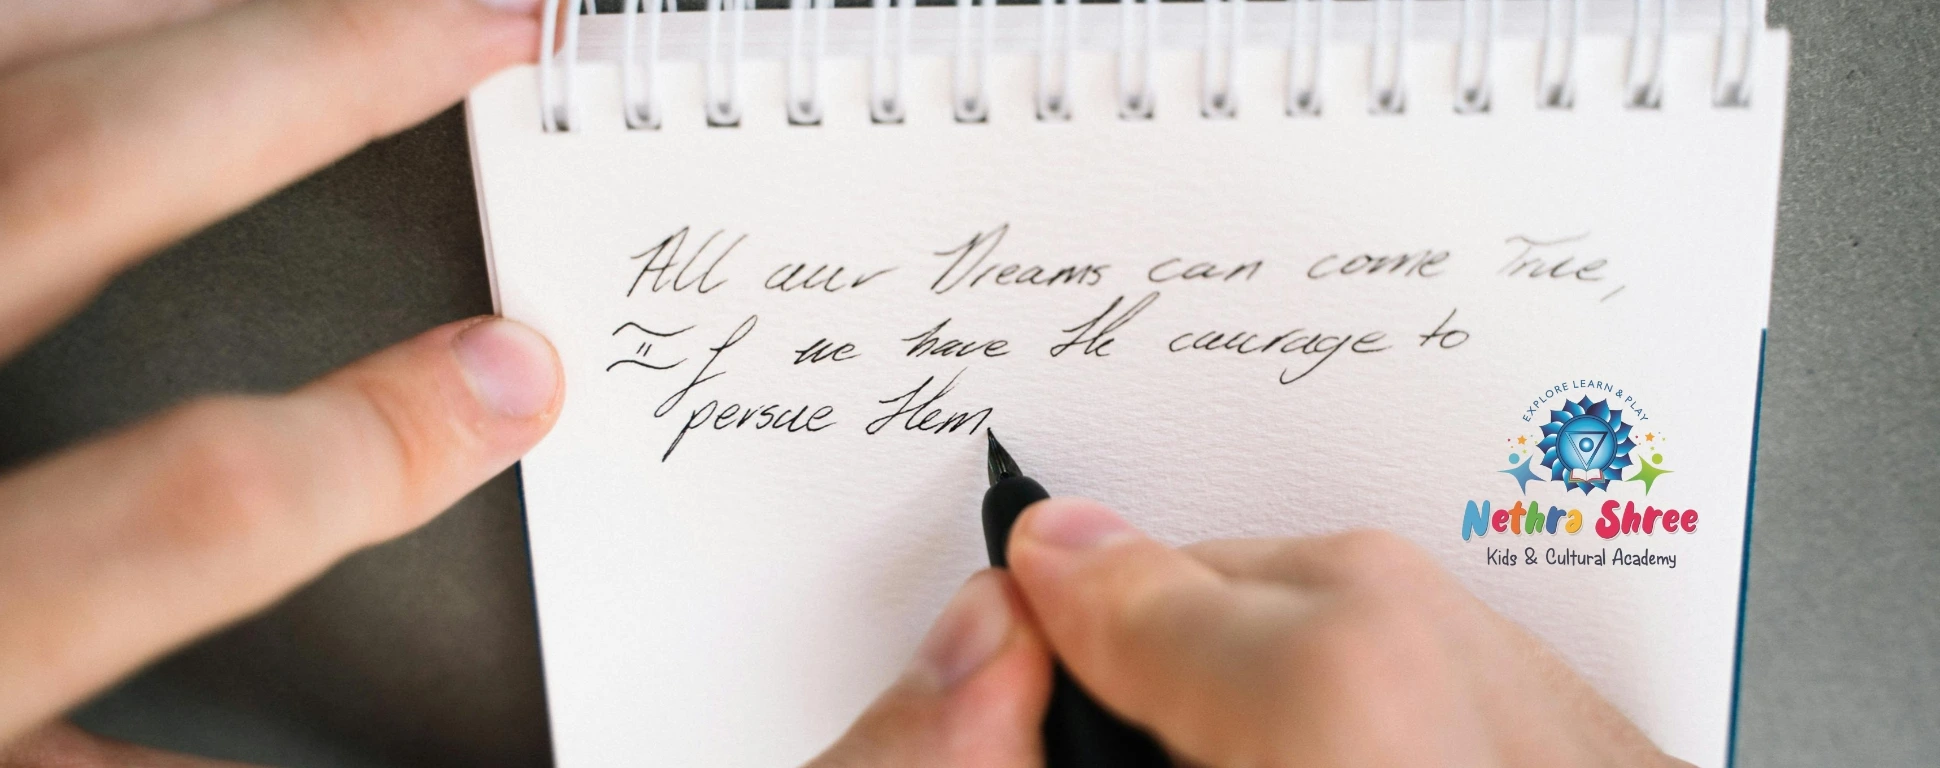 All our Dreams can come True,
If we have the courage to
persue them
EXPLORE LEARN & PLAY
Nethra Shree
Kids & Cultural Academy